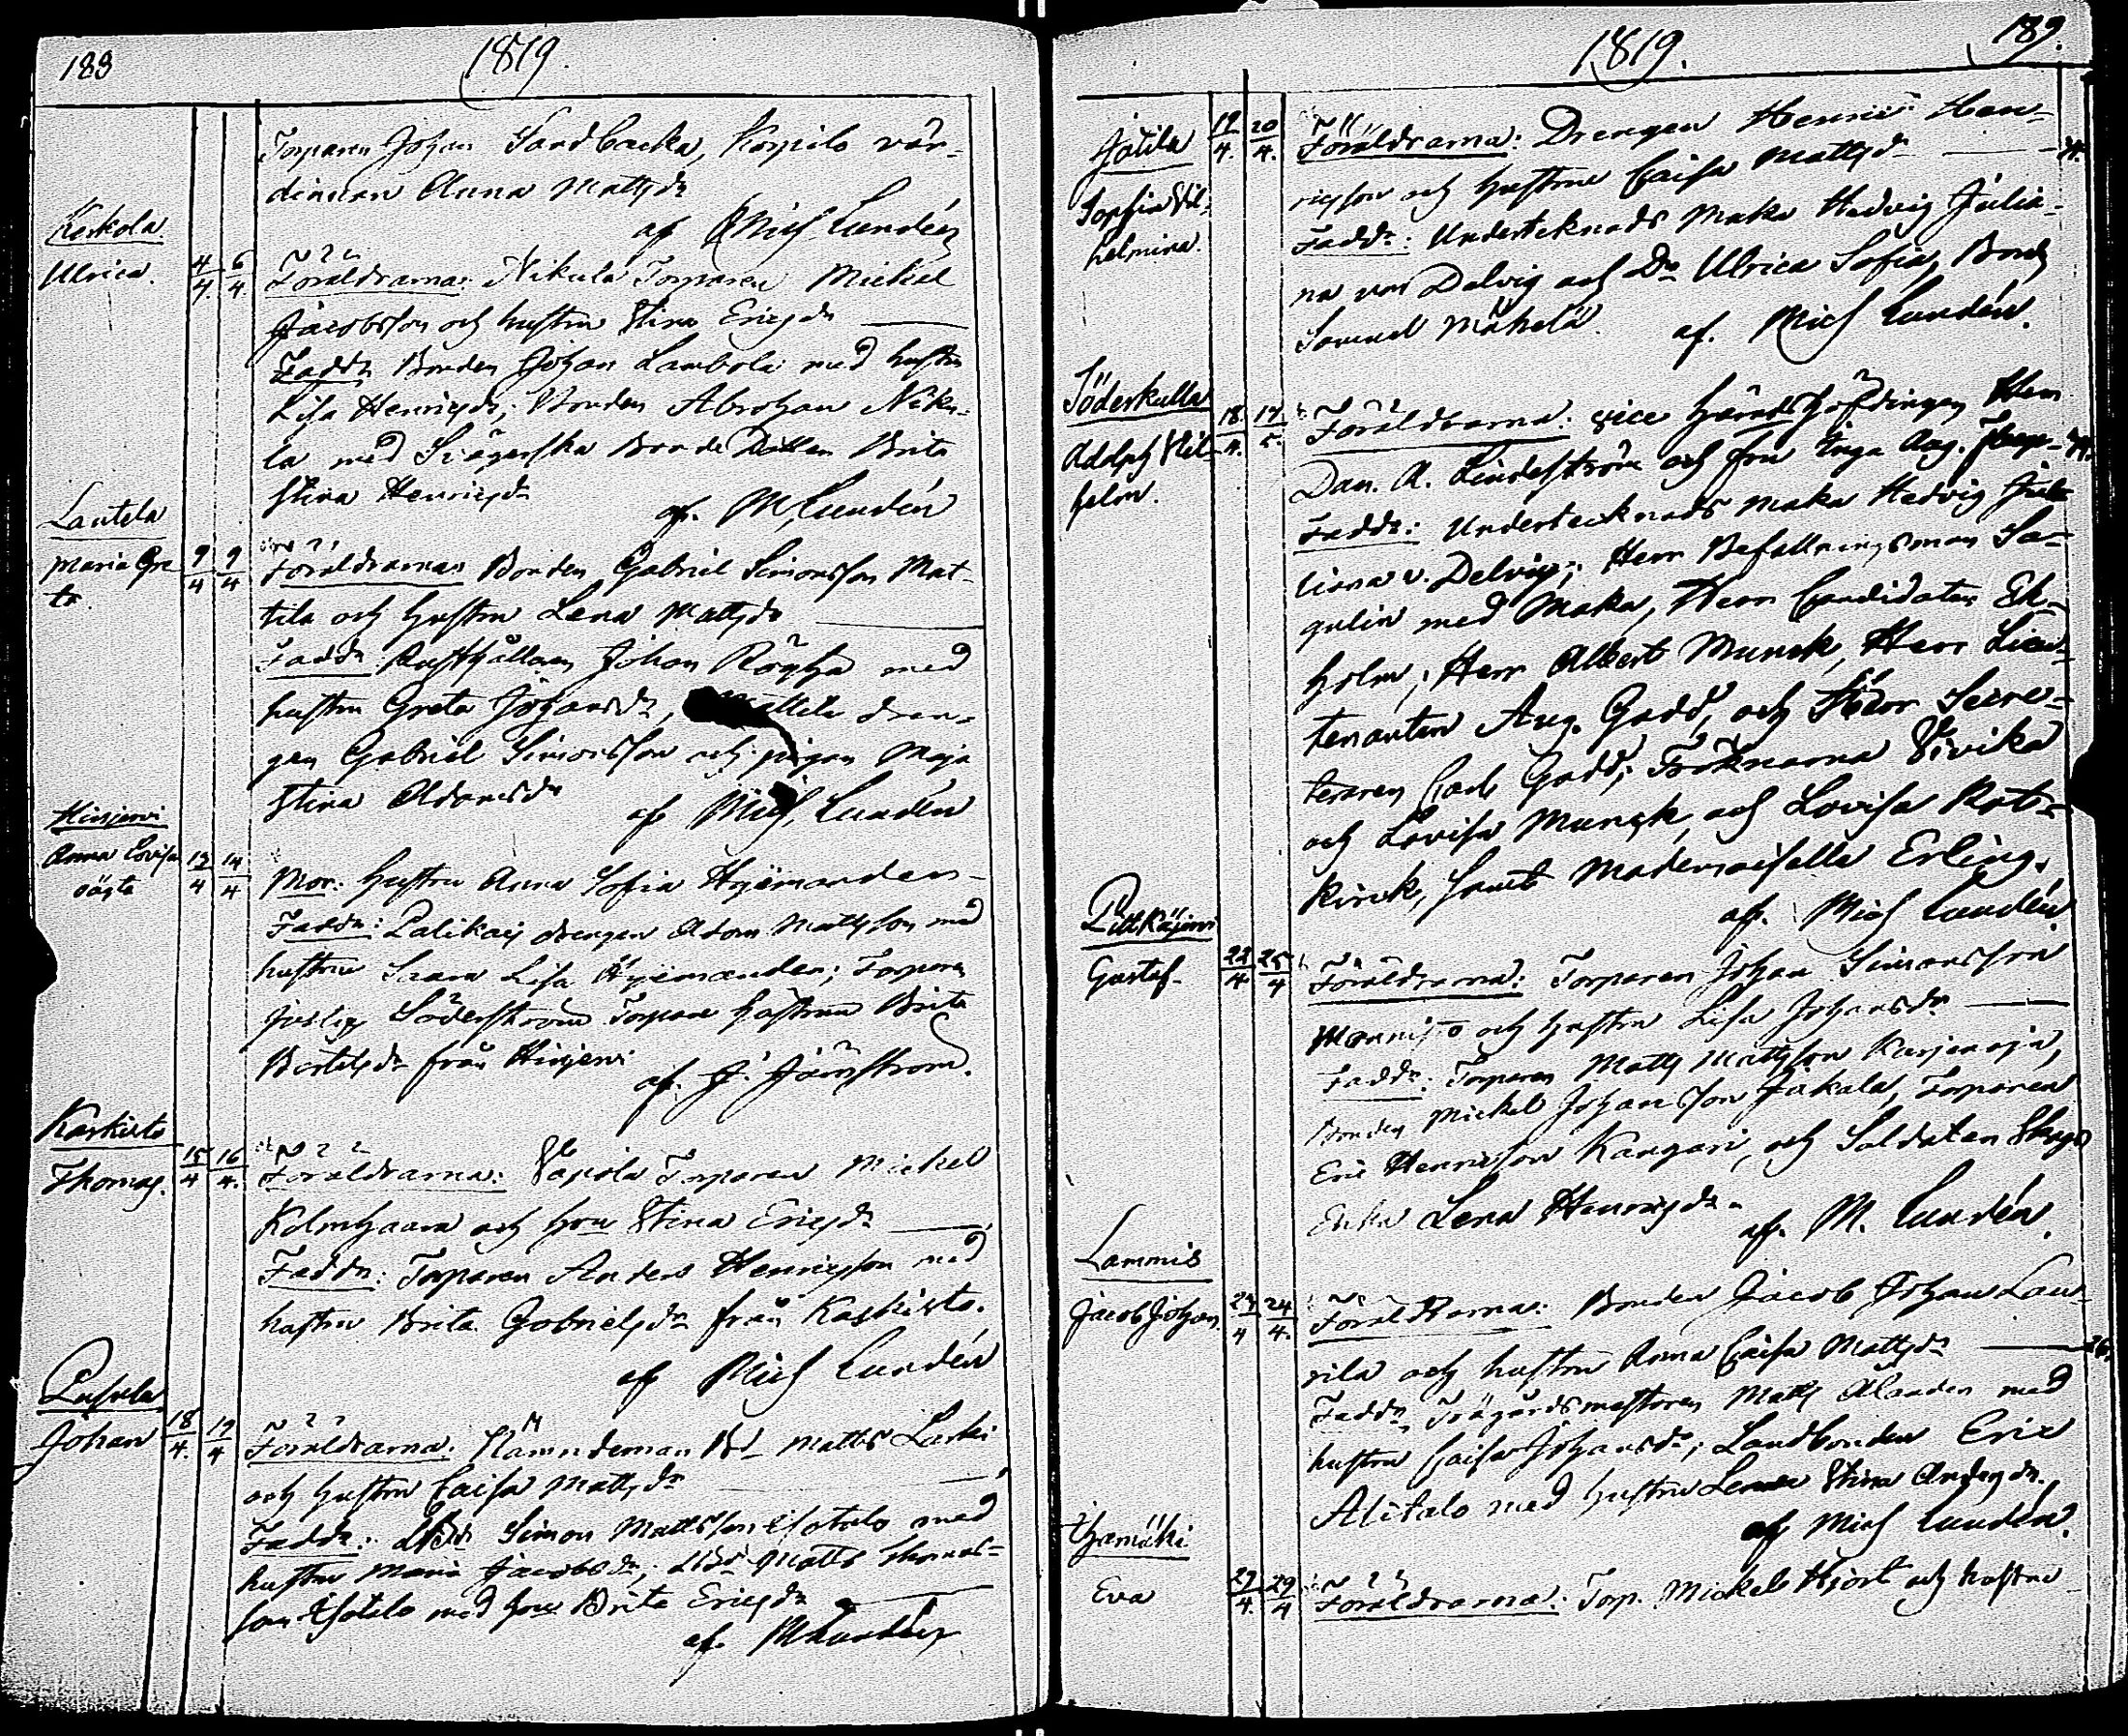 188
1819.
Torparen Johan Sandbacka, Korpilo vär-
dinnan Anna Mattsdr
af Mich Lundén
Koskola
Ulrica.
4/4. 6/4.
Föräldrarna: Nikula Torparen Mickel
Jacobsson och hustru Stina Ericsdr
Faddr Bonden Johan Lambola med hustru
Lisa Henricsdr, Bonden Abraham Niku-
la med Svägerska Bonde Dottren Brita
Stina Henricsdr
af. M. Lundén
Lautela
Maria Gre-
ta.
9/4 9/4
Föräldrarna Bonden Gabriel Simonsson Mat-
tila och hustru Lena Mattsdr
Faddr: Rusthållaren Johan Röyhä med
hustru Greta Johansdr, Mattila dren-
gen Gabriel Simonsson och pigan Maja
Stina Adamsdr
af Mich, Lundén
Hinjervi
Anna Lovisa
oägta
13/4 14/4
Mor: hustru Anna Sofia Hyémanden-
Faddr: Palikais drengen Adam Mattsson med
hustru Saara Lisa Hyémanden; Torparen
Söderström Torpare hustrun Brita
Bertilsdr från Hinjervi
af. J. Järnström.
Kaskisto
Thomas.
15/4 16/4.
Föräldrarna: Torparen Mickel
Kolmhaara och hru Stina Ericsdr
Faddr: Torparen Anders Henricsson med
hustru Brita Gabrielsdr från Kaskisto.
af Mich Lundén
Pusula
Johan
18/4. 19/4
Föräldrarna: Nämndeman Bd Matts Larki
och hustru Caisa Mattsdr
Faddr: Simon Mattsson Isotalo med
hustru Maria Jacobsdr; Matts Thomas-
son Isotalo med hru Brita Ericsdr
af. M Lundén
1819.
189.
Jotila
Sophia Vil-
helmina.
19/4. 20/4.
Föräldrarna: Drengen Henric Hen-
ricsson och hustru Caisa Mattsdr
Faddr: Undertecknads Maka Hedvig Julia-
na von Delvig och Dr Ulrica Sofia, Bond
Samuel Mäkelä.
af. Mich Lundén.
Söderkulla
Adolph Vil-
helm.
18/4. 17/5.
Föräldrarna: vice Häradshöfdingen Herr
Dan. A. Lindeström och fru Inga Aug.
Faddr: Undertecknads Maka Hedvig Jul-
liana v. Delvig; Herr Befallningsman Sa-
gulin med Maka, Herr Candidaten Ek-
holm; Herr Albert Munck, Herr Lieu-
tenanten Aug. Gadd, och Herr Secre-
teraren Carl Gadd; Fröknarna Vivika
och Lovisa Munck, och Lovisa Rot-
kirck, samt Mademoiselle Erling.
af. Mich Lundén
Pitkäjärvi
Gustaf.
22/4. 25/4
Föräldrarna: Torparen Johan Simonsson
Mannisto och hustru Lisa Johansdr
Faddr: Torparen Matts Mattsson Karjenoja,
Bonden Mickel Johansson Jakala, Torparen
Eric Henricsson Kangari, och Soldaten
Enka Lena Henricsdr.
af. M. Lundén.
Lammis
Jacob Johan.
24/4 24/4.
Föräldrarna: Bonden Jacob Johan Lau-
rila och hustru Anna Caisa Mattsdr
Faddr Trägårdsmästaren Matts Alanden med
hustru Caisa Johansdr; Landbonden Eric
Alitalo med hustru Lena Stina Andersdr.
af Mich Lundén.
Hjamäki
Eva
27/4. 29/4
Föräldrarna: Torp. Mickel Hjort och hustru